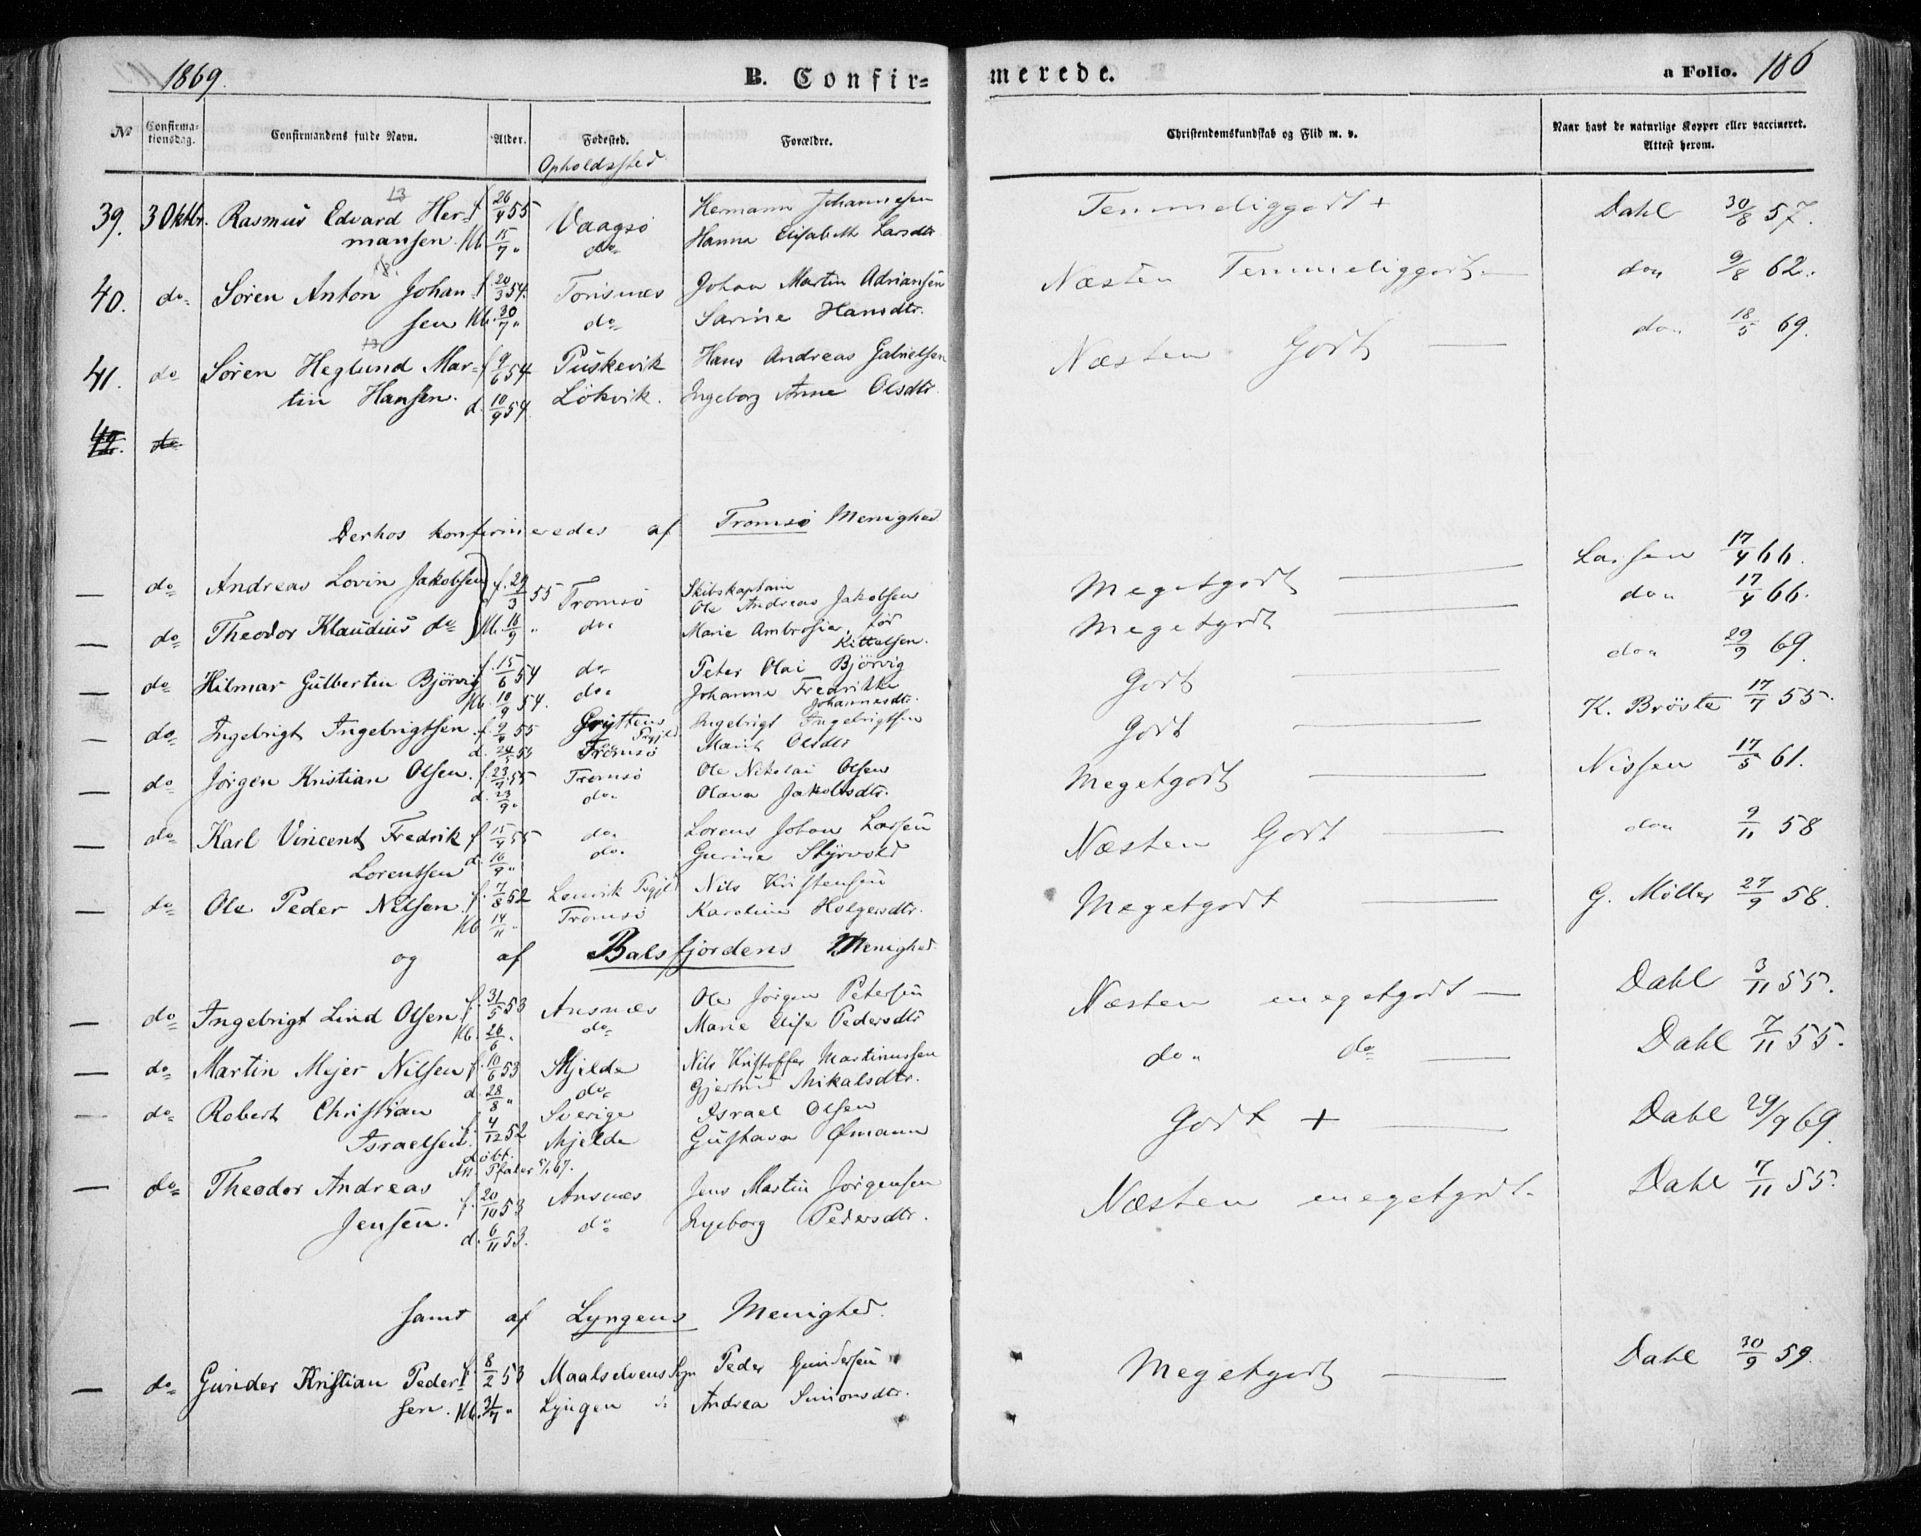 1869.
B. Confir=
merede.
a Folio. 186
No
Confirma-
tionsdag.
Confirmandens fulde Navn.
Alder.
Fødested.
Opholdssted
Forældre.
Christendomskundskab og Flid m. v.
Naar havt de naturlige Kopper eller vaccineret.
Attest herom.
13
39. 3 Oktbr. Rasmus Edvard Her- f. 26/4 55 Vaagsö Hermann Johannesen Temmeliggodt + Dahl 30/8 57.
mansen. Hb. 15/7 " do Hanna Elisabeth Larsdtr
40. do Sören Anton Johan- f. 20/3 54. Torisnæs Johan Martin Adriansen Næsten Temmeliggodt — do 9/8 62.
sen Hb. 30/7 " do Sarine Hansdtr.
13
41. do Sören Heglund Mar- f. 9/6 54 Puskevik Hans Andreas Gabrielsen Næsten Godt — do 18/5 69.
tin Hansen. d. 10/9 54. Lökvik. Ingeborg Anne Olsdtr.
42. do
Derhos konfirmeredes af Tromsö Menighed
— do Andreas Lovin Jakobsen f. 29/3 55 Tromsö Skibskaptain Ole Andreas Jakobsen Megetgodt — Lassen 17/4 66.
— do Theodor Klaudius do Hb. 16/9 " do Marie Ambrosia, föd Kittelsen. Megetgodt — do 17/4 66.
— do Hilmar Gulbertin Björvig f. 15/6 54 do Peter Olai Björvig Godt — do 29/9 69.
Hb. 10/9 54. do Johanna Fredrikke Johannesdtr.
— do Ingebrigt Ingebrigtsen. f. 9/4 55 Gryttens Prgjld Ingebrigt Ingebrigtsen Godt — K. Bröste 17/7 55.
d. 24/5 55 Tromsö Marit Olsdtr
— do Jörgen Kristian Olsen. f. 23/7 55 Tromsö Ole Nikolai Olsen Megetgodt — Nissen 17/5 61.
d. 23/9 " do Olava Jakobsdtr.
— do Karl Vincent Fredrik f. 15/4 55 do Lorens Johan Larsen Næsten Godt — do 9/11 58
Lorentsen d. 16/9 " do Gurine Styrvold
— do Ole Peder Nilsen f. 7/8 52 Lenvik Prgjld Nils Kristensen Megetgodt — G. Möller 27/9 58.
Hb 14/11 " Tromsö Karoline Holgersdtr.
og af Balsfjordens Menighed.
— do Ingebrigt Lind Olsen f. 31/5 53 Ansnæs Ole Jörgen Petersen Næsten megetgodt — Dahl 3/11 55.
Hb. 26/6 " do Marie Elise Pedersdtr
— do Martin Mejer Nilsen f. 10/6 53 Mjelde Nils Kristoffer Martinussen do do — Dahl 7/11 55.
d. 28/8 " do Gjertrud Mikalsdtr.
— do Robert Christian f. 4/12 52 Sverige Israel Olsen Godt + — Dahl 29/9 69.
Israelsen. döbt. Mjelde Gustava Ömann
— do Theodor Andreas f. 20/10 53 Ansnæs Jens Martin Jörgensen Næsten megetgodt. Dahl 7/11 55.
Jensen. d. 6/11 53. do Ingeborg Pedersdtr.
samt af Lyngens Menighed.
— do Gunder Kristian Peder- f. 8/2 53 Maalselvens Sogn Peder Gundersen Megetgodt — Dahl 30/9 59.
sen. Hb. 31/7 " Lyngen Andrea Simonsdtr.